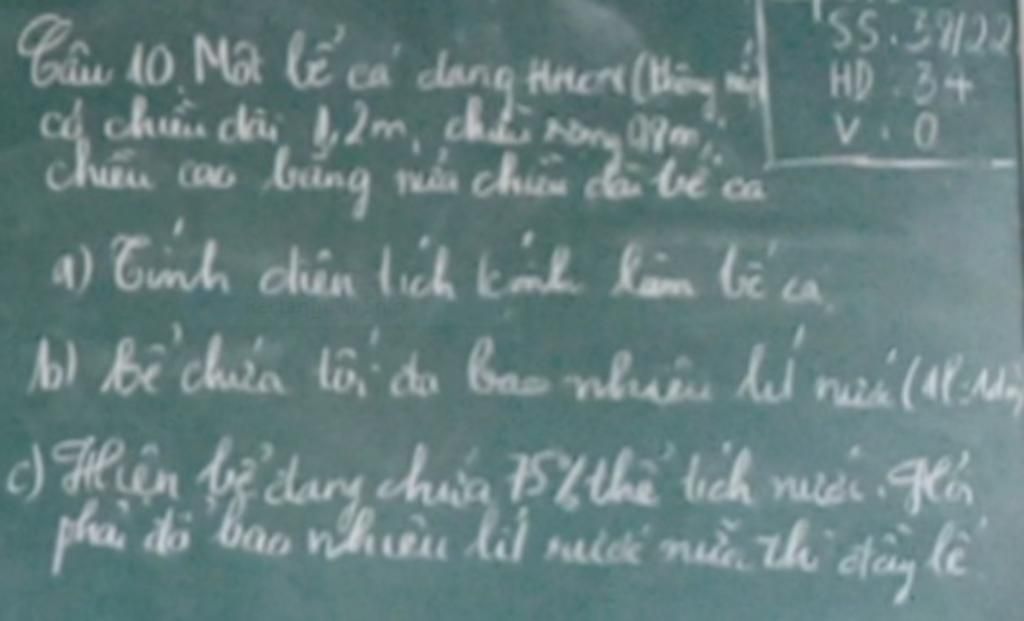 Câu 10. Một bể cá dạng HHCN (không nắp)
có chiều dài 1,2m, chiều rộng 0,8m,
chiều cao bằng nửa chiều dài bể cá
a) Tính diện tích kính làm bể cá.
b) Bể chứa tối đa bao nhiêu lít nước (1l=1dm
c) Hiện bể đang chứa 75% thể tích nước. Hỏi
phải đổ bao nhiêu lít nước nữa thì đầy bể
SS: /22
HD: 34
V: 0